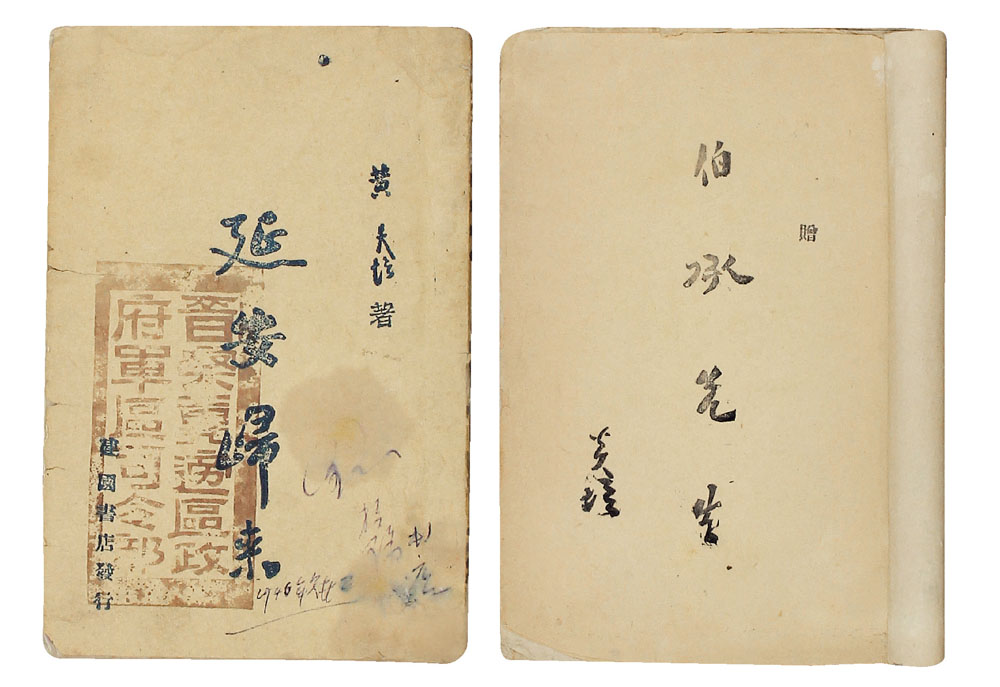 黄炎培著
延安歸来
晋察冀邊區政
府軍區司令部
建國書店發行
1946年
贈
伯承先生
炎培